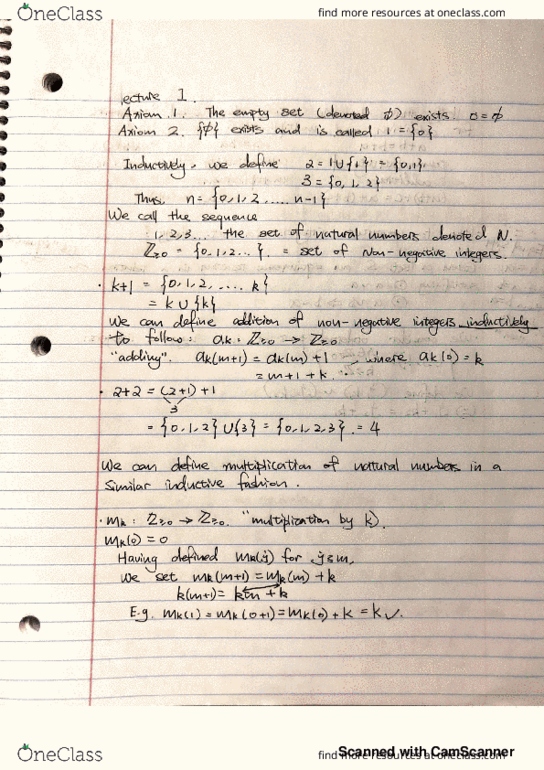 OneClass
find more resources at oneclass.com
ecture 1.
Axiom 1. The empty set (denoted ∅) exists. 0=∅
Axiom 2. {∅} exists and is called 1={0}
Inductively. we define 2=1∪{1}={0,1}
3={0,1,2}
Thus, n={0,1,2.....n-1}
We call the sequence
1,2,3... the set of natural numbers denoted N.
ℤ≥0 = {0,1,2...}. = set of Non-negative integers.
· k+1 = {0,1,2,.... k}
= k ∪ {k}
We can define addition of non-negative integers inductively
to follow: ak: ℤ≥0 → ℤ≥0
"adding". ak(m+1) = ak(m)+1 where ak(0)=k
= m+1+k.
· 2+2 = (2+1)+1
3
= {0,1,2}∪{3} = {0,1,2,3}.=4
We can define multiplication of natural numbers in a
similar inductive fashion.
· mk: ℤ≥0 → ℤ≥0. "multiplication by k).
mk(0)=0
Having defined mk(j) for j≤m,
we set mk(m+1)=mk(m)+k
k(m+1)= km+k
E.g. mk(1)=mk(0+1)=mk(0)+k=k✓.
OneClass
Scanned with CamScanner